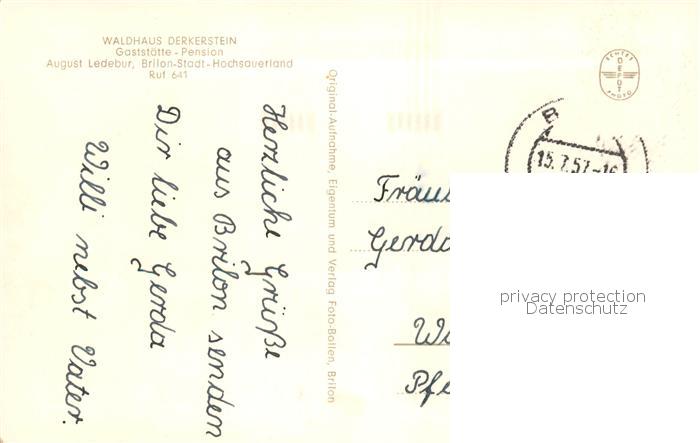 WALDHAUS DERKERSTEIN
Gaststätte - Pension
August Ledebur, Brilon-Stadt - Hochsauerland
Ruf 641
Herzliche Grüße
aus Brilon senden
Dir liebe Gerda
Willi nebst Vater.
Original-Aufnahme, Eigentum und Verlag Foto-Bollen, Brilon
DEPOT
PHOTO
B
15.7.57-16
Fräu
Gerda
Wi
Pfe
privacy protection
Datenschutz